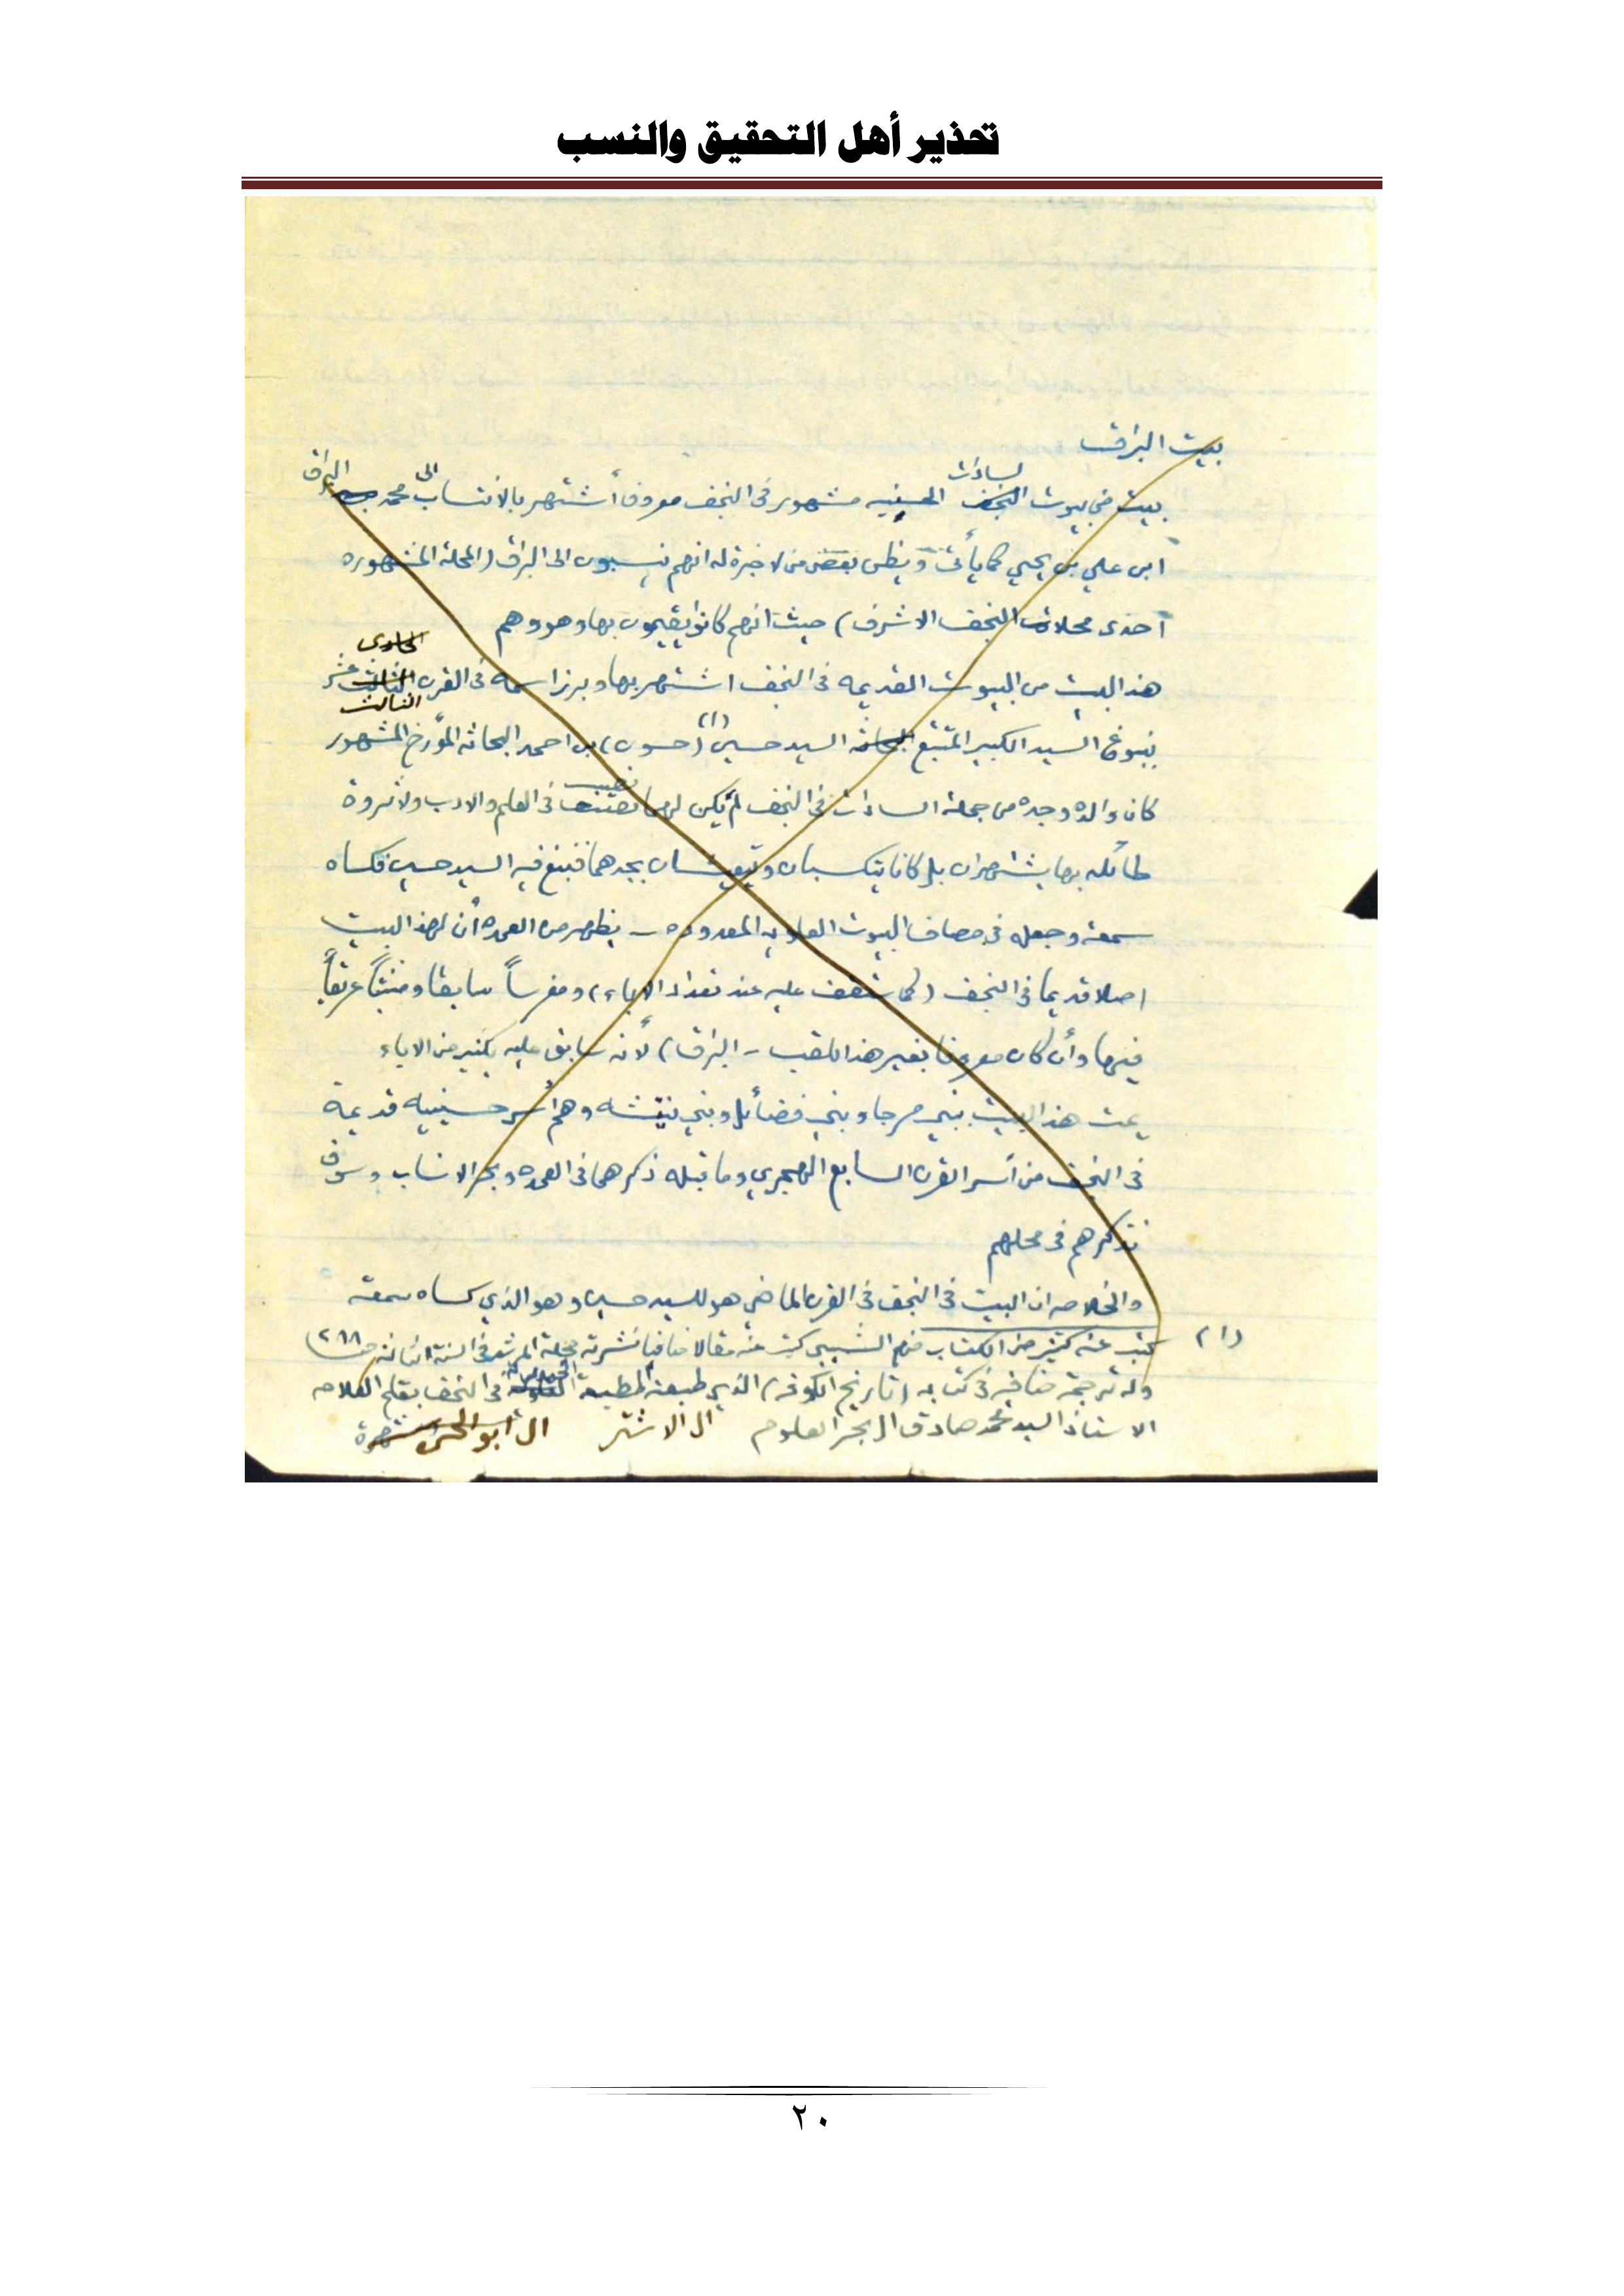 تحذير أهل التحقيق والنسب
بيت البراقي
بيت من بيوت السادات الحسنيه مشهور في النجف معروف أشتهر بالانتساب الى محمد البراقي
ابن علي بن يحيى كما يأتي ويظن بعض من لا خبرة له انهم ينسبون الى البراق (المحلة المشهوره
أحدى محلات النجف الاشرف) حيث انهم كانوا يقيمون بها وهو وهم
هذا البيت من البيوت القديمه في النجف اشتهر بها وبرز اسمه في القرن الثالث عشر
بنبوغ السيد الكبير المتتبع السيد حسين (١) (حسون) بن احمد البحاثه المؤرخ المشهور
كان والده وجده من جملة السادات في النجف لم يكن لهما نصيب في العلم والادب ولا ثروة
طائله بها يشتهران بل كانا يتكسبان ويتعيشان بجدهما فنبغ فيه السيد حسين فكساه
سمعة وجعله في مصاف البيوت العلويه المعدوده ــ يظهر من العمده أن لهذا البيت
اصلا قديما في النجف (كما ستقف عليه عند تعداد الاباء) ومغرساً سابقا ومنبتاً عريقاً
فيها وأن كان معروفا بغير هذا اللقب ــ البراقي) لأنه سابق عليه بكثير من الاباء
يمت هذا البيت ببني مرجا وبني فضائل وبني وهم أسر حسينيه قديمة
في النجف من أسر القرن السابع الهجري وما قبله ذكرهما في العمده وبحر الانساب وسوف
نذكرهم في محلهم
والخلاصه ان البيت في النجف في القرن الماضي هو للسيد حسين وهو الذي كساه سمعة
(١) كتب عنه كثير من الكتاب منهم الشبيبي كتب عنه مقالا ضافيا نشرته مجلة المرشد في السنة الثانه ص ٢٨٨
وله ترجمة ضافيه في كتابه (تاريخ الكوفه) الذي طبعته المطبعة الحيدريه في النجف بقلم العلامه
الاستاذ السيد محمد صادق ال بحر العلوم ال الاشتر ال ابو الحسن
٢٠